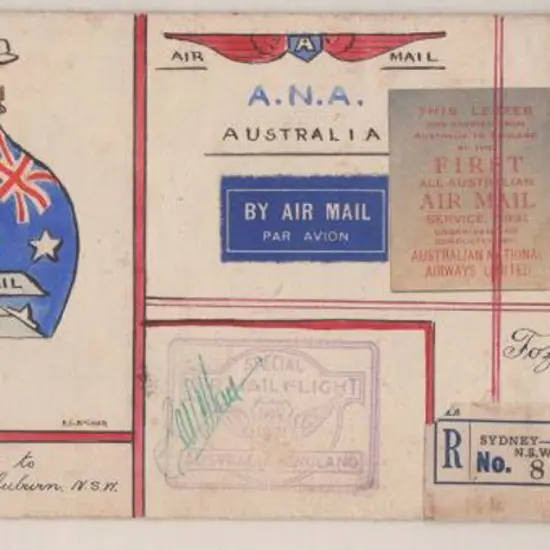 AIR MAIL
A
A.N.A.
AUSTRALIA
BY AIR MAIL
PAR AVION
THIS LETTER
WAS CARRIED FROM
AUSTRALIA TO ENGLAND
BY THE
FIRST
ALL-AUSTRALIAN
AIR MAIL
SERVICE, 1931
UNDERTAKEN AND
CONDUCTED BY
AUSTRALIAN NATIONAL
AIRWAYS LIMITED
AIL
SPECIAL
AIR MAIL FLIGHT
AUSTRALIA ENGLAND
to
Auburn, N.S.W.
R
SYDNEY—
N.S.W
No. 8